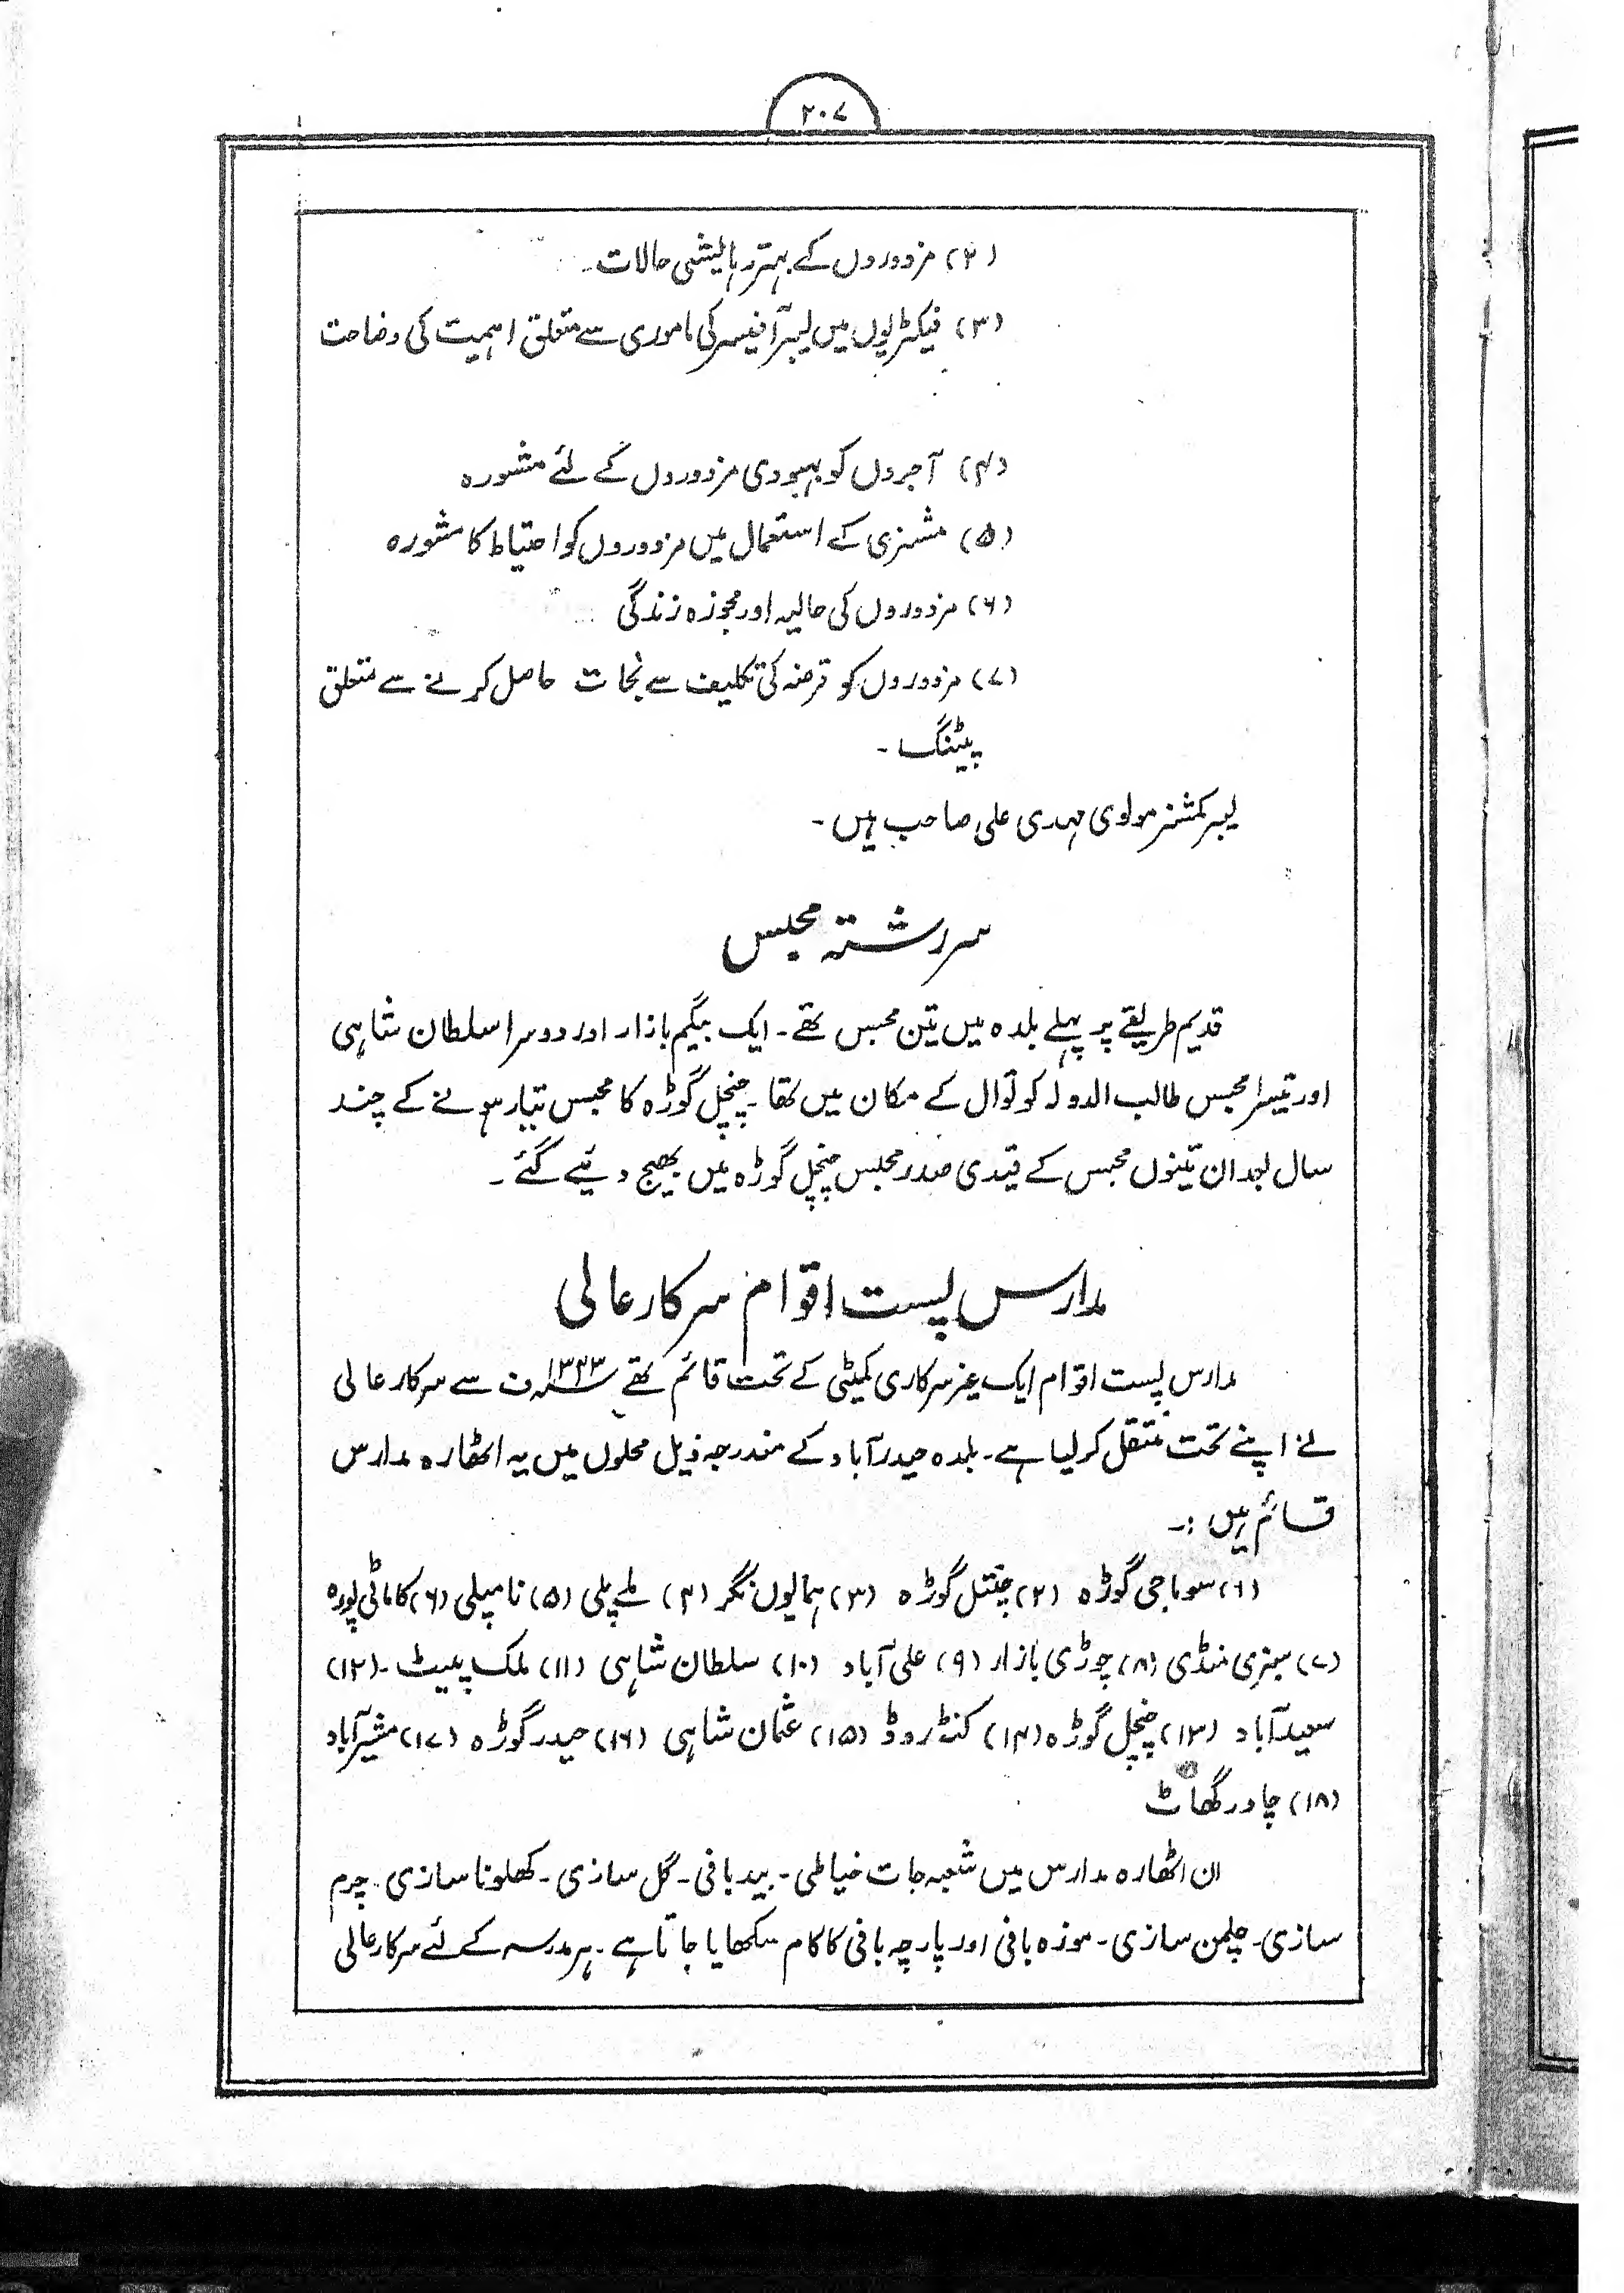 ۲۰۷
(۲) مزدوروں کے بہتر رہائیشی حالات۔
(۳) فیکٹریوں میں لیبر آفیسر کی ماموری سے متعلق اہمیت کی وضاحت
(۴) آجروں کو بہبودی مزدوروں کے لئے مشورہ
(۵) مشنری کے استعمال میں مزدوروں کو احتیاط کا مشورہ
(۶) مزدوروں کی حالیہ اور مجوزہ زندگی
(۷) مزدوروں کو قرضہ کی تکلیف سے نجات حاصل کرنے سے متعلق
پیٹنگ ۔
لیبر کمشنر مولوی مہدی علی صاحب ہیں ۔
سررشتہ محبس
قدیم طریقے پر پہلے بلدہ میں تین محبس تھے ۔ ایک بیگم بازار اور دوسرا سلطان شاہی
اور تیسرا محبس طالب الدولہ کوتوال کے مکان میں تھا ۔ چنچل گوڑہ کا محبس تیار ہونے کے چند
سال بعد ان تینوں محبس کے قیدی صدر محبس چنچل گوڑہ میں بھیج دئیے گئے ۔
مدارس پست اقوام سرکار عالی
مدارس پست اقوام ایک غیر سرکاری کمیٹی کے تحت قائم تھے ۱۳۴۳؁ ف سے سرکار عالی
نے اپنے تحت منتقل کر لیا ہے ۔ بلدہ حیدرآباد کے مندرجہ ذیل محلوں میں یہ اٹھارہ مدارس
قائم ہیں :۔
(۱) سوباجی گوڑہ (۲) چنتل گوڑہ (۳) ہمایوں نگر (۴) ملے پلی (۵) نامپلی (۶) کاماٹی پورہ
(۷) سبزی منڈی (۸) چوڑی بازار (۹) علی آباد (۱۰) سلطان شاہی (۱۱) ملک پیٹ ۔ (۱۲)
سعیدآباد (۱۳) چنچل گوڑہ (۱۴) کنٹہ روڈ (۱۵) عثمان شاہی (۱۶) حیدر گوڑہ (۱۷) مشیرآباد
(۱۸) چادر گھاٹ
ان اٹھارہ مدارس میں شعبہ جات خیاطی ۔ بید بافی ۔ گل سازی ۔ کھلونا سازی ۔ چرم
سازی ۔ چلمن سازی ۔ موزہ بافی اور پارچہ بافی کا کام سکھایا جاتا ہے ۔ ہر مدرسہ کے لئے سرکار عالی